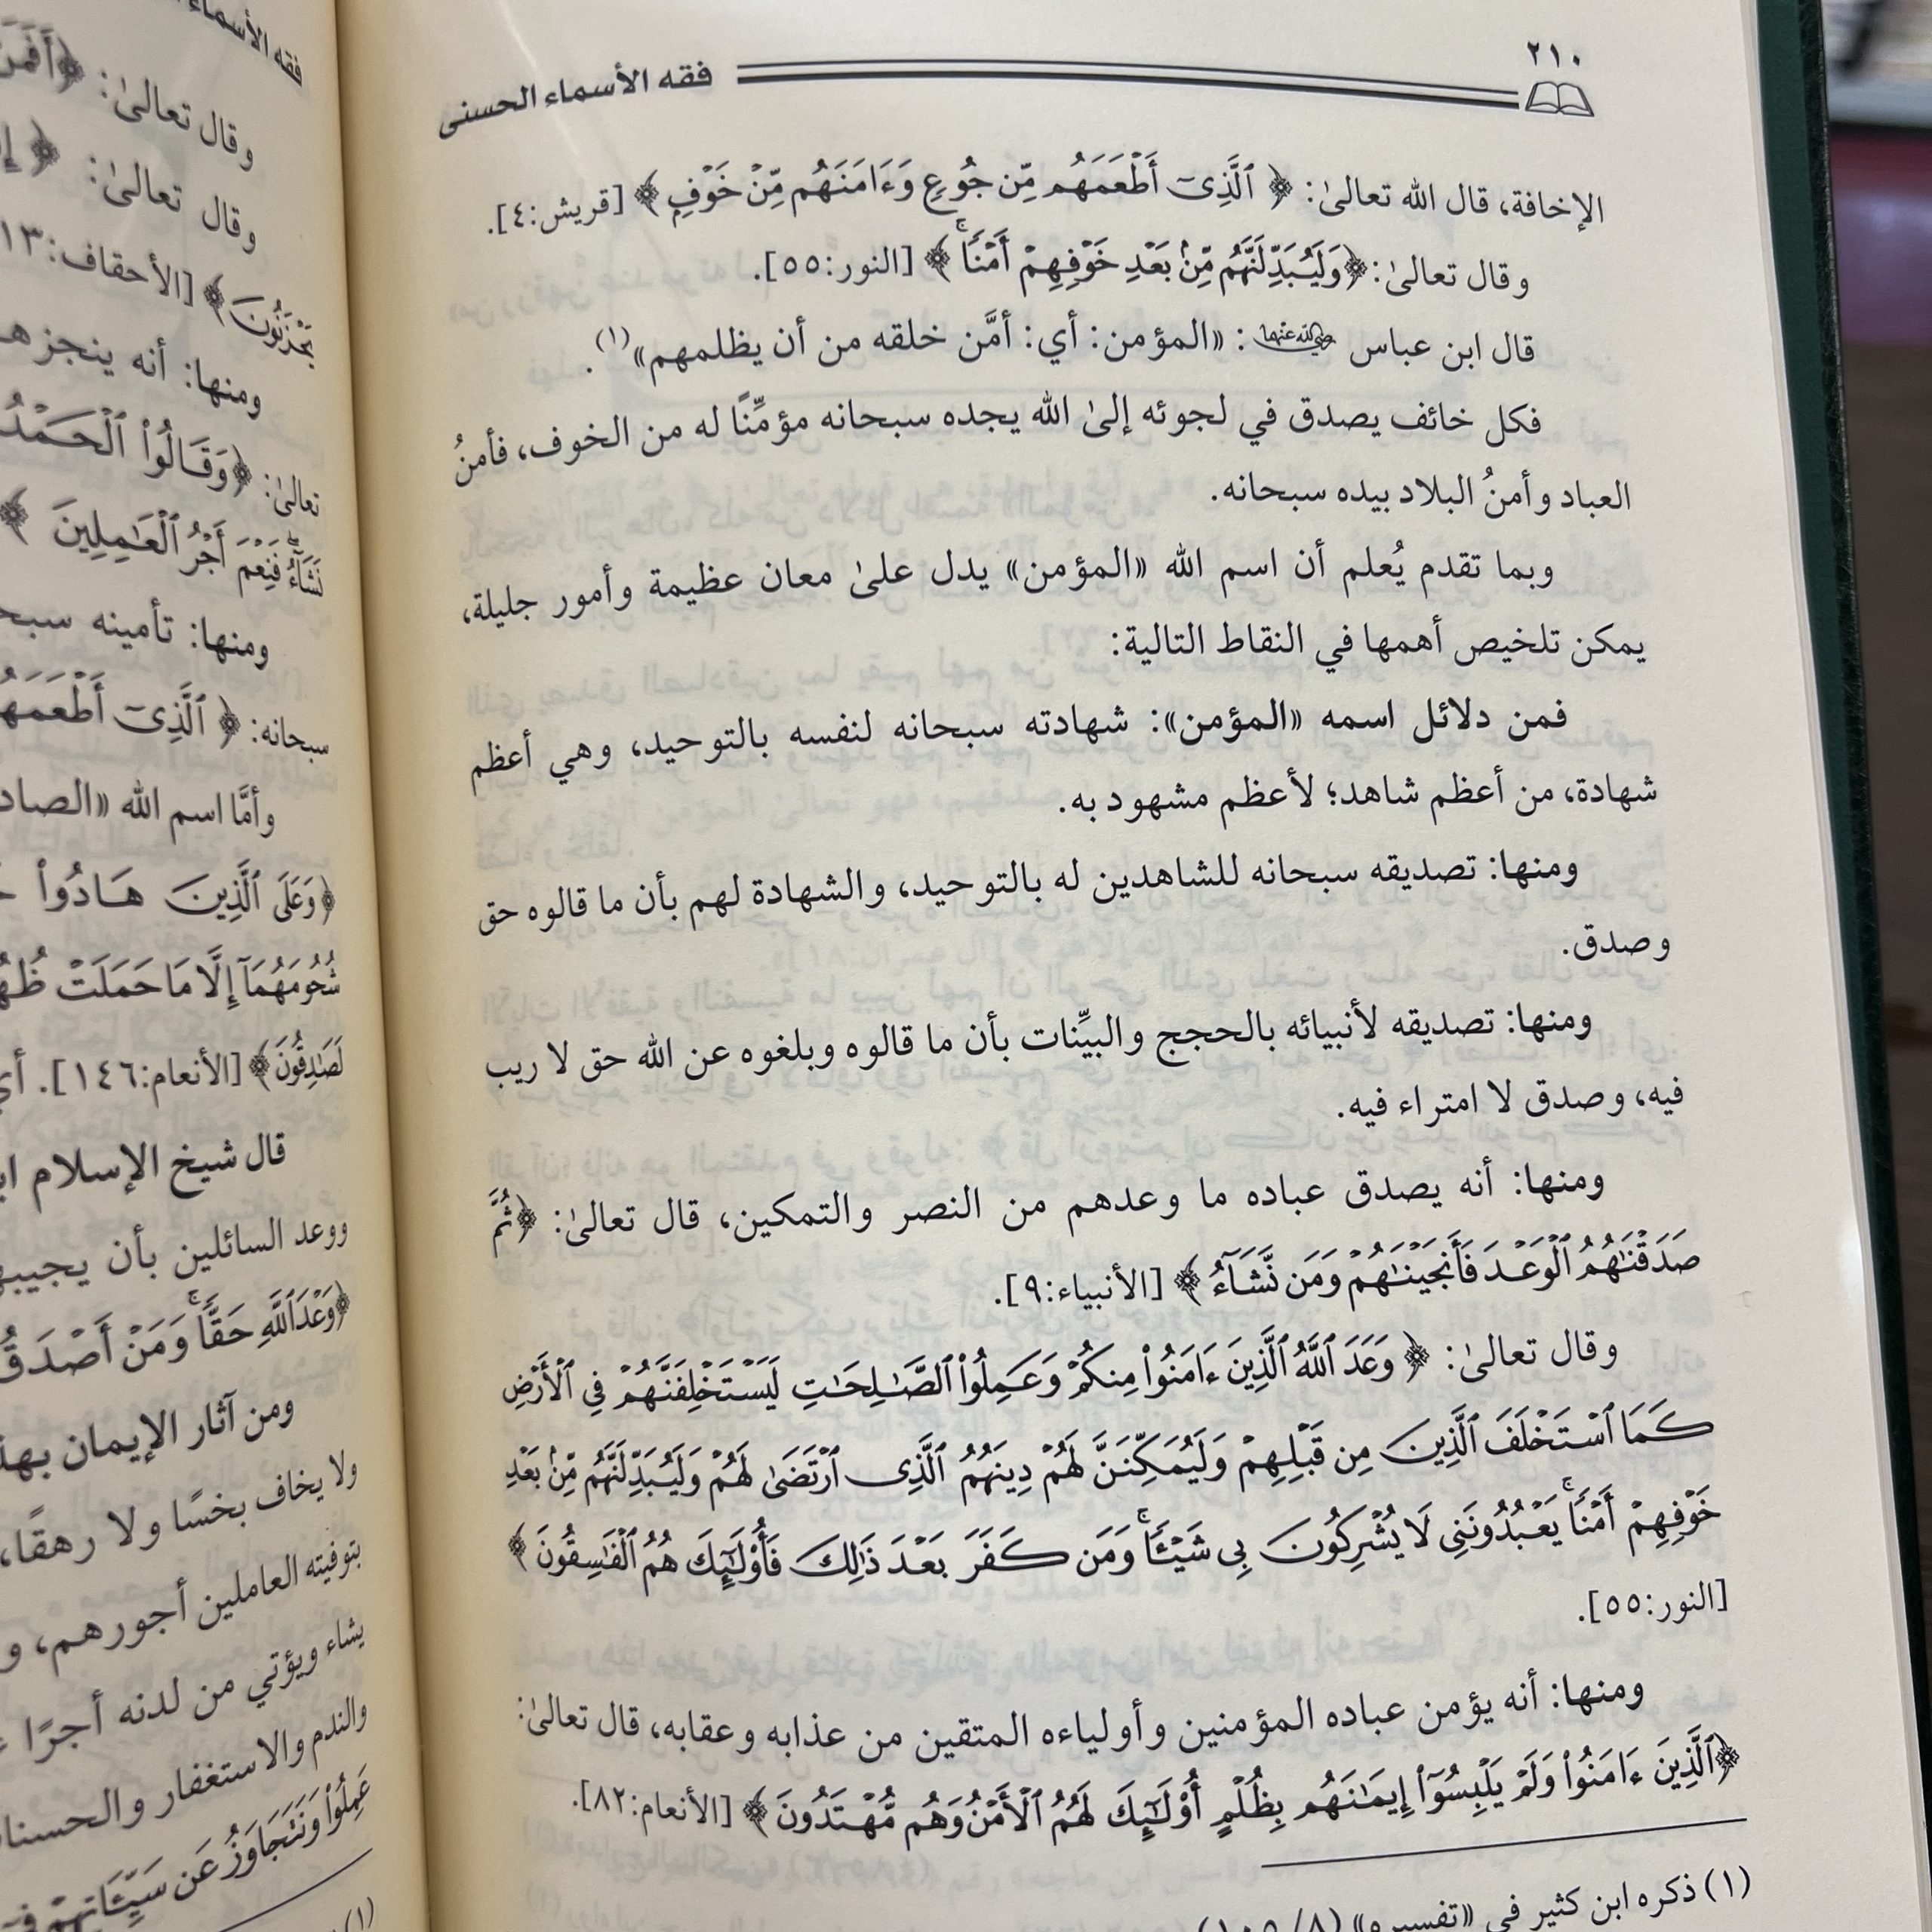 ٢١٠
فقه الأسماء الحسنى
الإخافة، قال الله تعالىٰ: ﴿ ٱلَّذِىٓ أَطْعَمَهُم مِّن جُوعٍ وَءَامَنَهُم مِّنْ خَوْفٍ ﴾ [قريش:٤].
وقال تعالىٰ: ﴿وَلَيُبَدِّلَنَّهُم مِّنۢ بَعْدِ خَوْفِهِمْ أَمْنًا ۚ ﴾ [النور:٥٥].
قال ابن عباس رضي الله عنهما : «المؤمن: أي: أمَّن خلقه من أن يظلمهم»(١).
فكل خائف يصدق في لجوئه إلىٰ الله يجده سبحانه مؤمِّنًا له من الخوف، فأمنُ
العباد وأمنُ البلاد بيده سبحانه.
وبما تقدم يُعلم أن اسم الله «المؤمن» يدل علىٰ معان عظيمة وأمور جليلة،
يمكن تلخيص أهمها في النقاط التالية:
فمن دلائل اسمه «المؤمن»: شهادته سبحانه لنفسه بالتوحيد، وهي أعظم
شهادة، من أعظم شاهد؛ لأعظم مشهود به.
ومنها: تصديقه سبحانه للشاهدين له بالتوحيد، والشهادة لهم بأن ما قالوه حق
وصدق.
ومنها: تصديقه لأنبيائه بالحجج والبيِّنات بأن ما قالوه وبلغوه عن الله حق لا ريب
فيه، وصدق لا امتراء فيه.
ومنها: أنه يصدق عباده ما وعدهم من النصر والتمكين، قال تعالىٰ: ﴿ثُمَّ
صَدَقْنَٰهُمُ ٱلْوَعْدَ فَأَنجَيْنَٰهُمْ وَمَن نَّشَآءُ ﴾ [الأنبياء:٩].
وقال تعالىٰ: ﴿ وَعَدَ ٱللَّهُ ٱلَّذِينَ ءَامَنُوا۟ مِنكُمْ وَعَمِلُوا۟ ٱلصَّٰلِحَٰتِ لَيَسْتَخْلِفَنَّهُمْ فِى ٱلْأَرْضِ
كَمَا ٱسْتَخْلَفَ ٱلَّذِينَ مِن قَبْلِهِمْ وَلَيُمَكِّنَنَّ لَهُمْ دِينَهُمُ ٱلَّذِى ٱرْتَضَىٰ لَهُمْ وَلَيُبَدِّلَنَّهُم مِّنۢ بَعْدِ
خَوْفِهِمْ أَمْنًا ۚ يَعْبُدُونَنِى لَا يُشْرِكُونَ بِى شَيْـًٔا ۚ وَمَن كَفَرَ بَعْدَ ذَٰلِكَ فَأُو۟لَٰٓئِكَ هُمُ ٱلْفَٰسِقُونَ ﴾
[النور:٥٥].
ومنها: أنه يؤمن عباده المؤمنين وأولياءه المتقين من عذابه وعقابه، قال تعالىٰ:
﴿ٱلَّذِينَ ءَامَنُوا۟ وَلَمْ يَلْبِسُوٓا۟ إِيمَٰنَهُم بِظُلْمٍ أُو۟لَٰٓئِكَ لَهُمُ ٱلْأَمْنُ وَهُم مُّهْتَدُونَ ﴾ [الأنعام:٨٢].
(١) ذكره ابن كثير في «تفسيره»
فقه الأسماء
وقال تعالىٰ: ﴿أَفَمَن
وقال تعالىٰ: ﴿
يَحْزَنُونَ ﴾ [الأحقاف:١٣
ومنها: أنه ينجز
تعالىٰ: ﴿وَقَالُوا۟ ٱلْحَمْدُ
نَشَآءُ ۖ فَنِعْمَ أَجْرُ ٱلْعَٰمِلِينَ ﴾
ومنها: تأمينه
سبحانه: ﴿ ٱلَّذِىٓ
وأمَّا اسم الله
﴿وَعَلَى ٱلَّذِينَ هَادُوا۟
شُحُومَهُمَآ إِلَّا مَا حَمَلَتْ
لَصَٰدِقُونَ ﴾ [الأنعام:١٤٦].
قال شيخ الإسلام
ووعد السائلين بأن
﴿وَعْدَ ٱللَّهِ حَقًّا ۚ وَمَنْ أَصْدَقُ
ومن آثار الإيمان
ولا يخاف بخسًا ولا رهقًا،
بتوفيته العاملين أجورهم،
يشاء ويؤتي من لدنه أجرًا
والندم والاستغفار
عَمِلُوا۟ وَنَتَجَاوَزُ عَن سَيِّـَٔاتِهِمْ
(١)